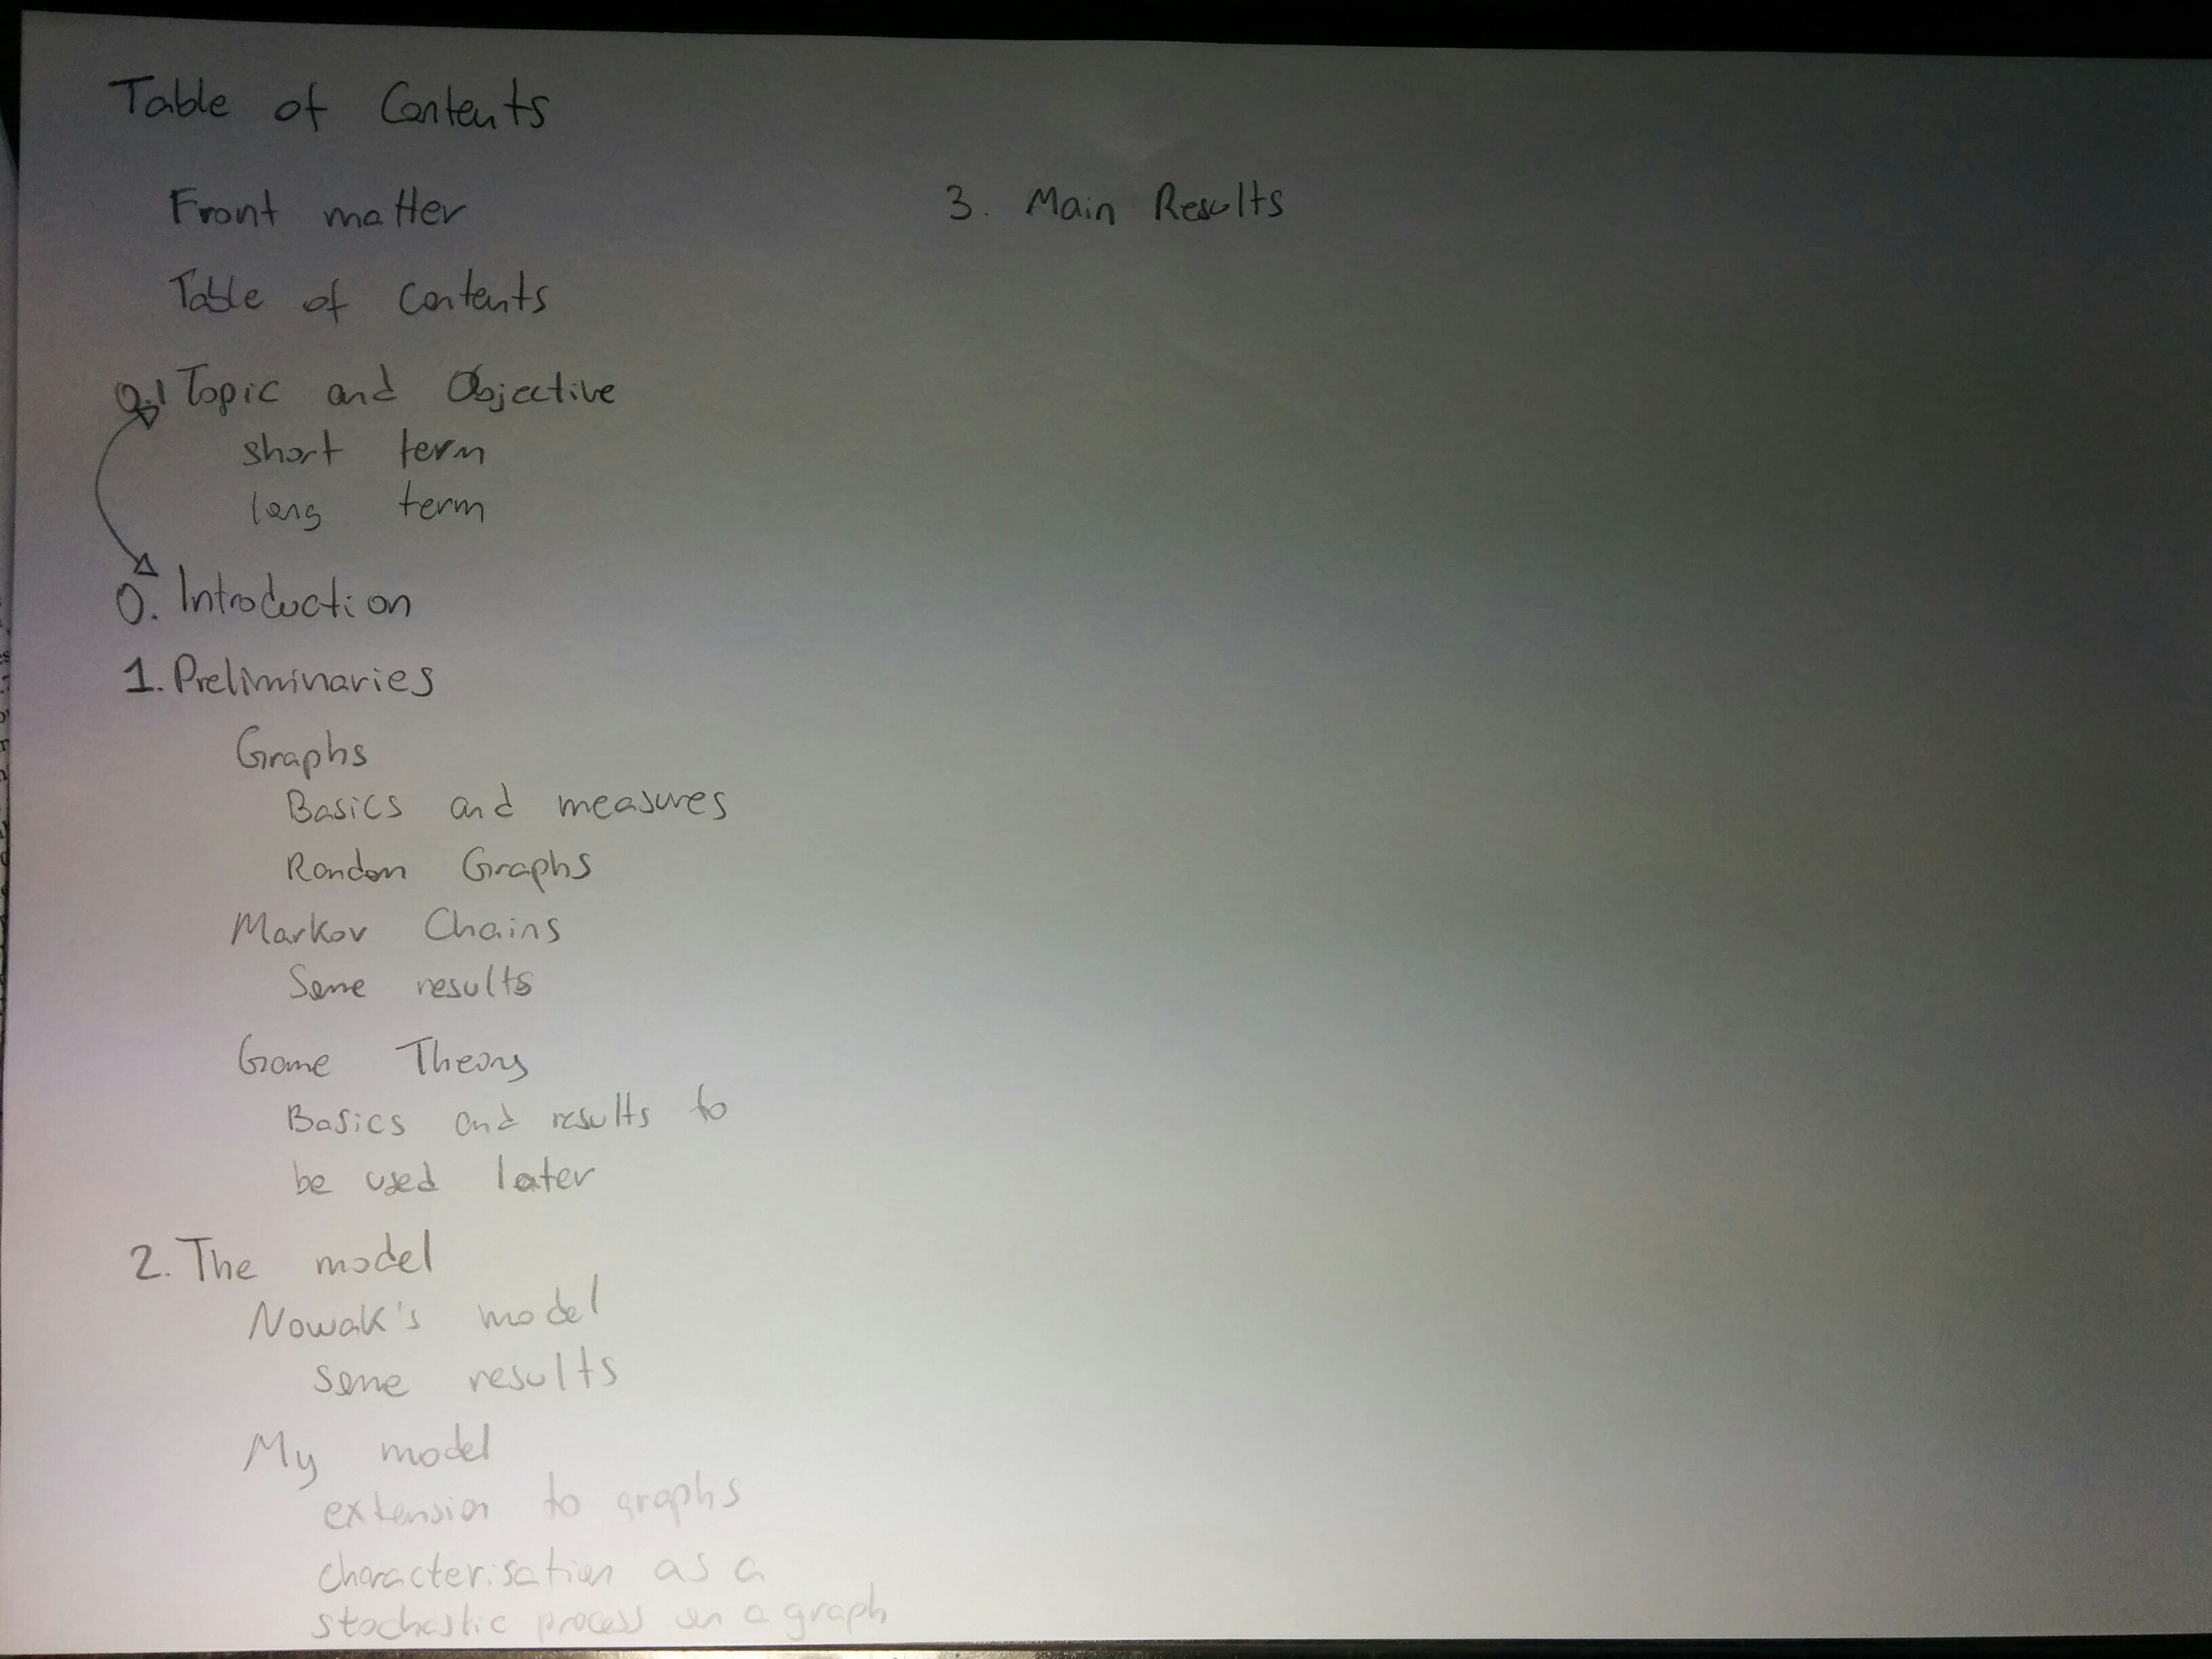 Table of Contents
Front matter
Table of Contents
0.1 Topic and Objective
short term
long term
0. Introduction
1. Preliminaries
Graphs
Basics and measures
Random Graphs
Markov Chains
Some results
Game Theory
Basics and results to
be used later
2. The model
Nowak's model
some results
My model
extension to graphs
characterisation as a
stochastic process on a graph
3. Main Results